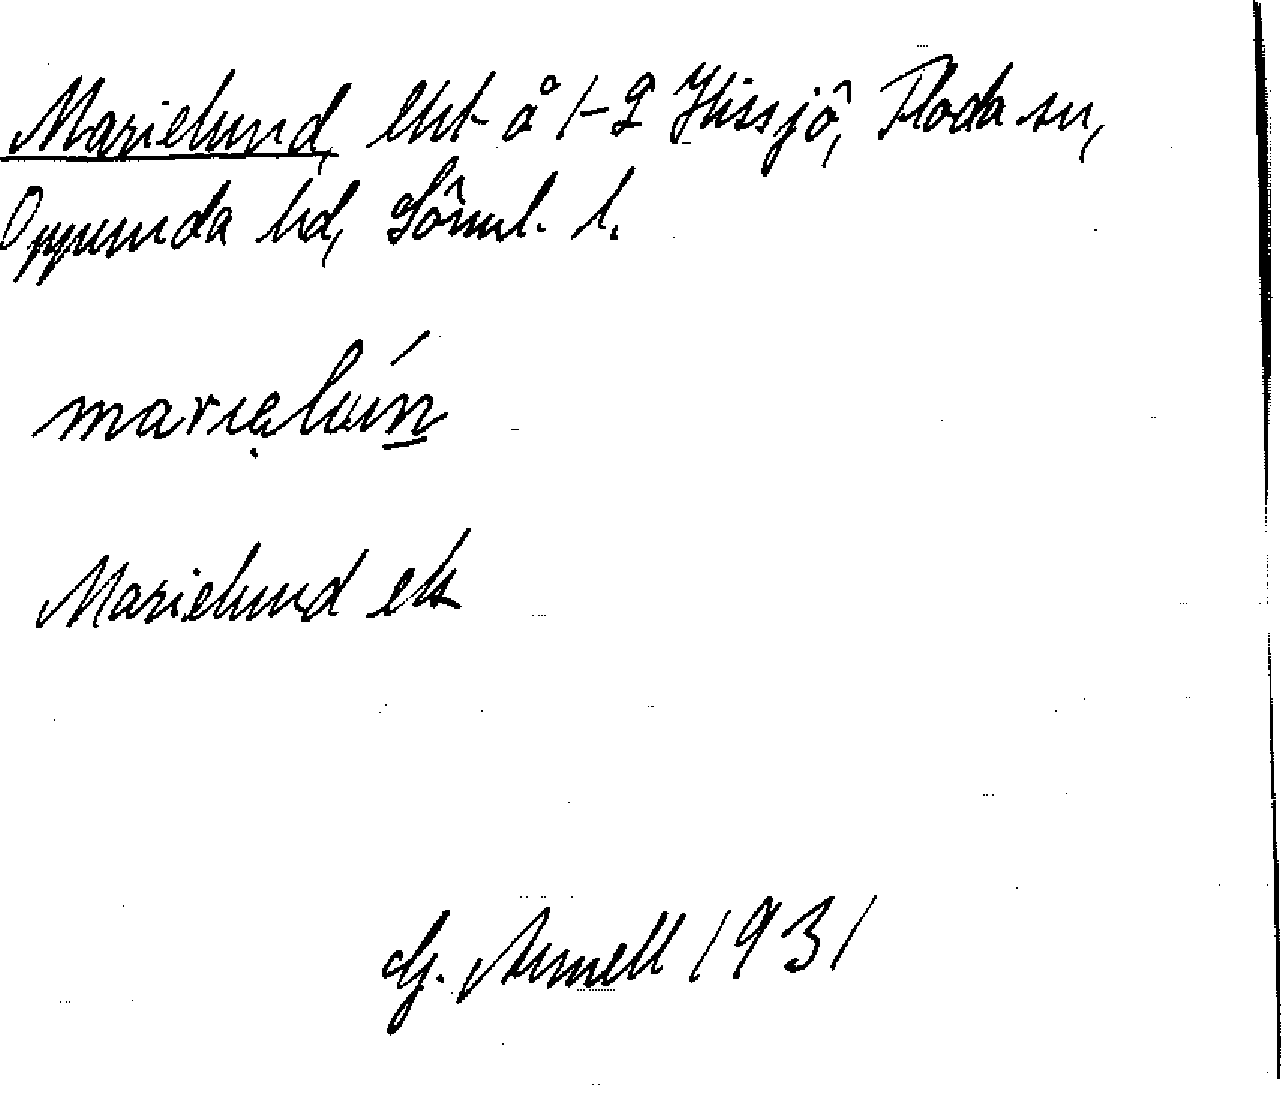 Marielund, lht å 1-2 Hissjö, Floda sn,
Oppunda hd, Sörml. l.
marielún
Marielund ek
G. Arnell 1931